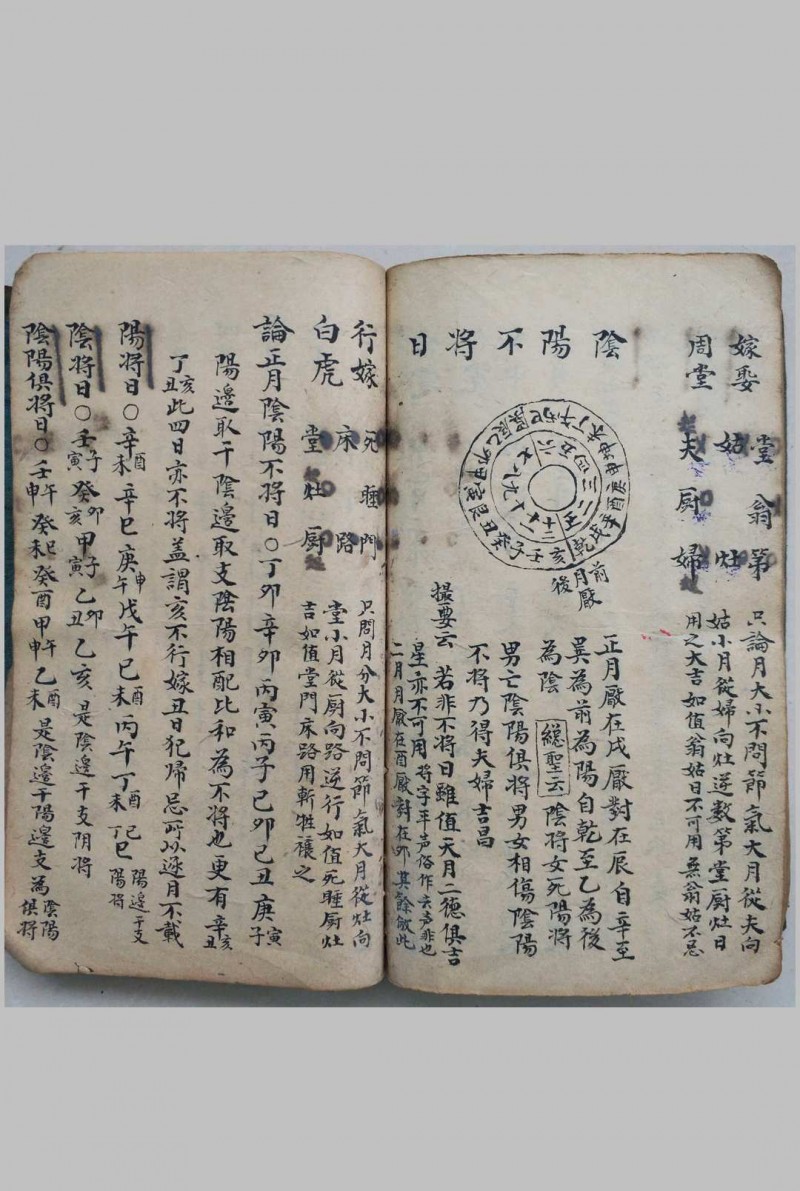 嫁娶
周堂
堂翁第
姑 灶
夫厨婦
只論月大小不問節氣大月從夫向
姑小月從婦向灶逆数第堂厨灶日
用之大吉如值翁姑日不可用無翁姑不忌
陰陽不將日
前
月厭
後
正月厭在戌厭對在辰自辛至
巽為前為陽自乾至乙為後
為陰 緫聖云 陰將女死陽將
男亡陰陽俱將男女相傷陰陽
不將乃得夫婦吉昌
撮要云 若非不將日雖值天月二德俱吉
星亦不可用 將字平声俗作去声非也
二月月厭在酉厭對在卯其餘倣此
行嫁
白虎
死睡門
床 路
堂灶厨
只問月分大小不問節氣大月從灶向
堂小月從厨向路逆行如值死睡厨灶
吉如值堂門床路用斬牲禳之
論正月陰陽不將日○丁卯辛卯丙寅丙子己卯己丑庚寅子
陽邊取干陰邊取支陰陽相配比和為不將也更有辛亥丑
丁亥丑此四日亦不將蓋謂亥不行嫁丑日犯歸忌所以逐月不載
陽將日○辛酉未辛巳庚申午戊午己酉未丙午丁酉未丁巳 陽邊干支陽將
陰將日○壬子寅癸卯亥甲子寅乙卯丑乙亥是陰邊干支阴將
陰陽俱將日○壬午申癸巳未癸酉甲午申乙酉未是陰邊干陽邊支為陰陽俱將